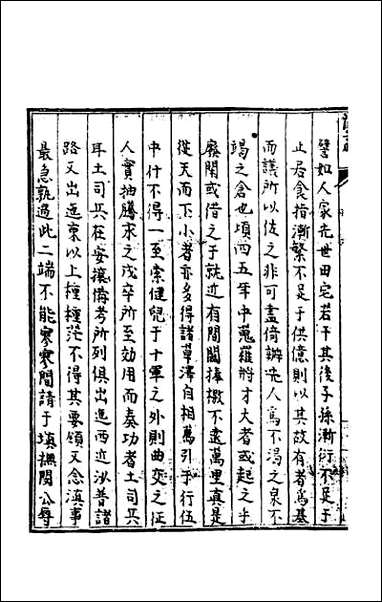 譬如人家先世田宅若干其後子孫漸衍不足于
止居食指漸繁不足于供億則以其故有者為基
而議所以佐之非可盡倚辦先人為不渴之泉不
竭之倉也頃四五年中蒐羅將才大者或起之乎
廢閑或借之于就近有間闢捧檄不遠萬里真是
從天而下小者亦多得諸草澤自相薦引乎行伍
中什不得一至索健兒于十軍之外則曲突之征
人實抽賸求之戍卒所至効用而奏功者土司兵
耳土司兵在安攘備考所列俱出迤西近泌普諸
路又出迤東以上種種茫不得其要領又念滇事
最急孰過此二端不能寥寥間請于填撫閔公辱